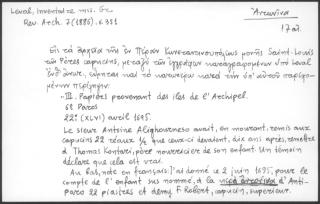 Laval, Inventaire mss. Gr.
Rev. Arch. 7 (1886). σ. 331
Ἀντωνίνα
17 αἰ.
Εἰς τὰ ἀρχεῖα τῆς ἐν Πέραν Κωνσταντινουπόλεως μονῆς Saint-Louis
τῶν Pères capucins, μεταξὺ τῶν ἐγγράφων καταγραφομένων ὑπὸ Laval
ἔνθ' ἄνωτ. εὕρηται καὶ τὸ κατωτέρω κατὰ τὴν ὑπ' αὐτοῦ παρεχο-
μένην περίληψιν.
«III. Papiers provenant des iles de l'Archipel.
6º Paros
22: (XLVI) avril 1695.
Le sieur Antoine Alighourneso avait, en mourant, remis aux
capucins 22 réaux ½ que ceux-ci devaient, dix ans après, remettre
à Thomas Kontari, père nourricier de son enfant. Un témoin
déclare que cela est vrai.
Au bas, note en français: J'ai donné ce 2 juin 1695, pour le
compte de l'enfant sus nommé, à la d'Anti-
paro 22 piastres et demy. F. Robert, capucin, supérieur.